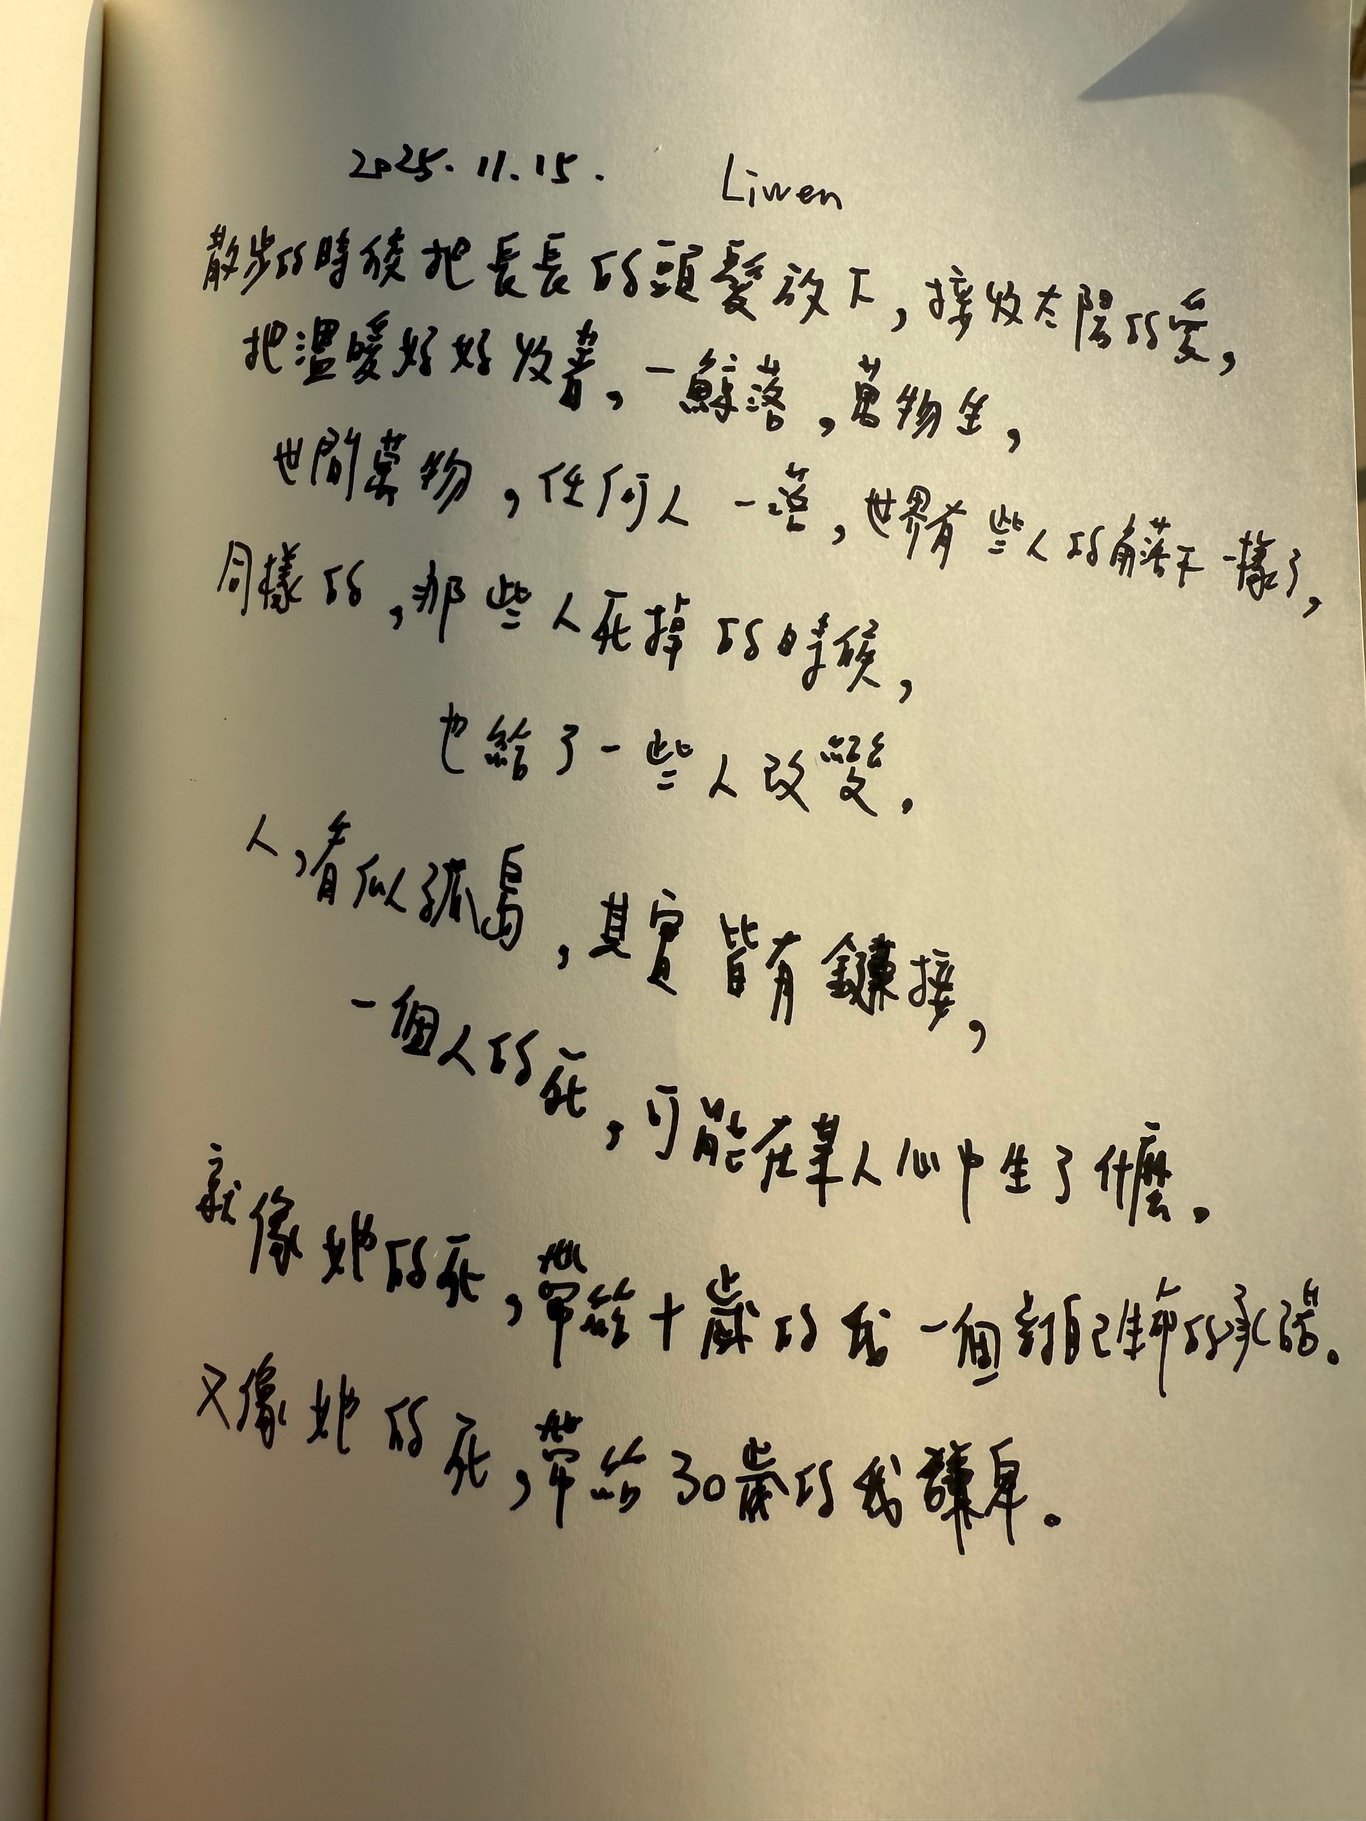 2025.11.15. Liwen
散步的時候把長長的頭髮放下，接收太陽的愛，
把溫暖好好收着，一鯨落，萬物生，
世間萬物，任何人一落，世界有些人的角落不一樣了，
同樣的，那些人死掉的時候，
也給了一些人改變。
人，看似孤島，其實皆有鏈接，
一個人的死，可能在某人心中生了什麼。
就像她的死，帶給十歲的我一個對自己生命的承諾。
又像她的死，帶給30歲的我謙卑。